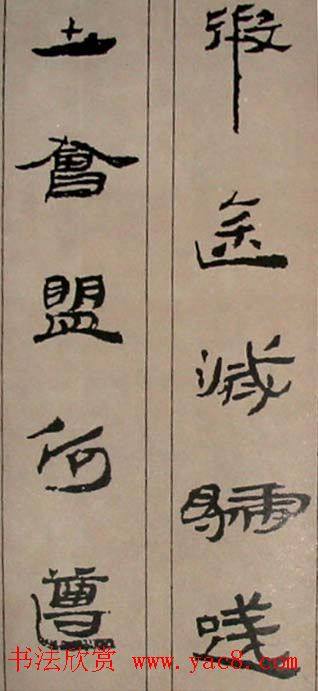 假途滅虢踐
土會盟何遵
书法欣赏 www.yac8.com